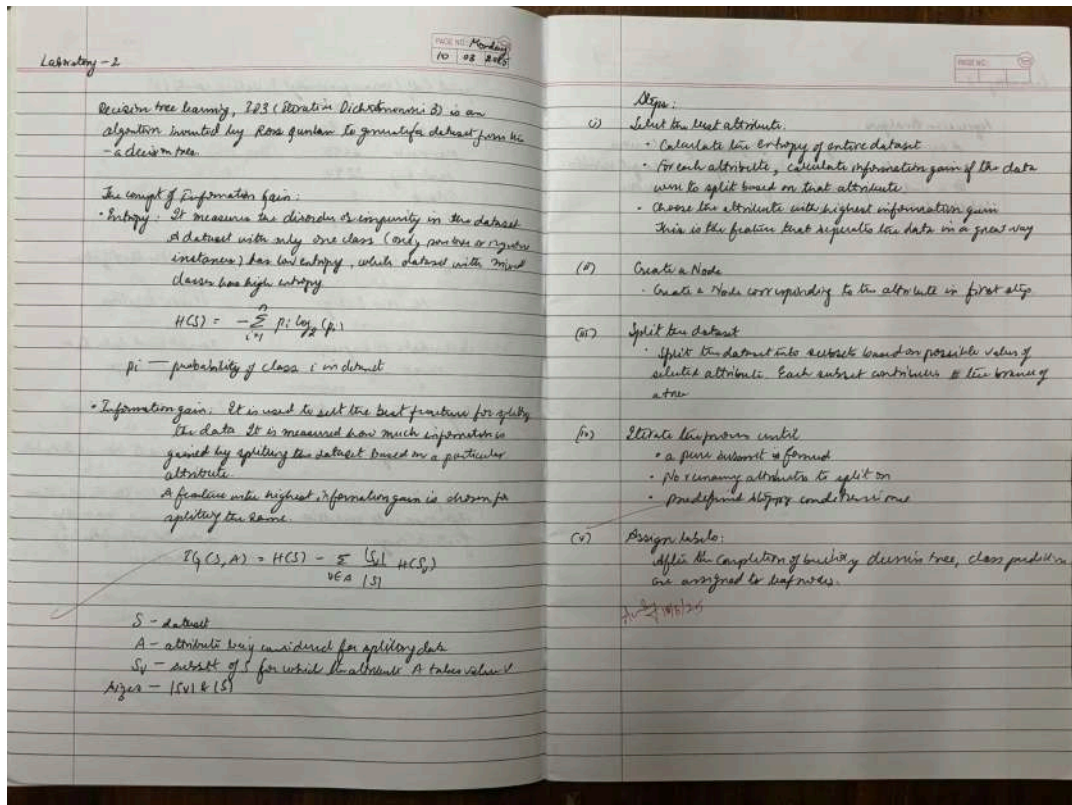 PAGE NO: Monday
10 03 2025
Laboratory - 2
Decision tree learning, ID3 (Iterative Dichotomiser 3) is an
algorithm invented by Ross Quinlan to generate for dataset from the
- a decision tree.
The concept of Information Gain:
• Entropy: It measures the disorder or impurity in the dataset
A dataset with only one class (only positive or negative
instances) has low entropy, while dataset with mixed
classes has high entropy
H(S) = - n∑i=1 pi log2 (pi)
pi — probability of class i in dataset
• Information gain: It is used to select the best feature for spliting
the data It is measured how much information is
gained by spliting the dataset based on a particular
attribute.
A feature with highest information gain is chosen for
spliting the same.
IG (S, A) = H(S) - ∑v∈A |Sv|/|S| H(Sv)
S - dataset
A - attribute being considered for spliting data
Sv - subset of S for which the attribute A takes value V
sizes - |Sv| & |S|
PAGE NO:
Steps:
(i) Select the best attribute.
• Calculate the entropy of entire dataset
• For each attribute, calculate information gain if the data
were to split based on that attribute
• Choose the attribute with highest information gain
This is the feature that seperates the data in a great way
(ii) Create a Node
• Create a Node corresponding to the attribute in first step
(iii) Split the dataset
• Split the dataset into subsets based on possible value of
selected attribute. Each subset contributes the branch of
a tree
(iv) Iterate the process until
• a pure subset is formed
• No remaining attributes to split on
• predefined stopping
(v) Assign labels:
After the completion of building decision tree, class prediction
are assigned to leaf nodes.